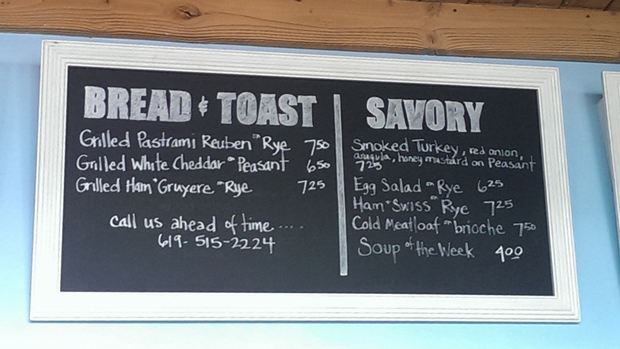 BREAD & TOAST
Grilled Pastrami Reuben on Rye 7.50
Grilled White Cheddar on Peasant 6.50
Grilled Ham + Gruyere on Rye 7.25
Call us ahead of time ....
619-515-2224
SAVORY
Smoked Turkey, red onion,
arugula, honey mustard on Peasant
7.25
Egg Salad on Rye 6.25
Ham + Swiss on Rye 7.25
Cold Meatloaf on brioche 7.50
Soup of the Week 4.00